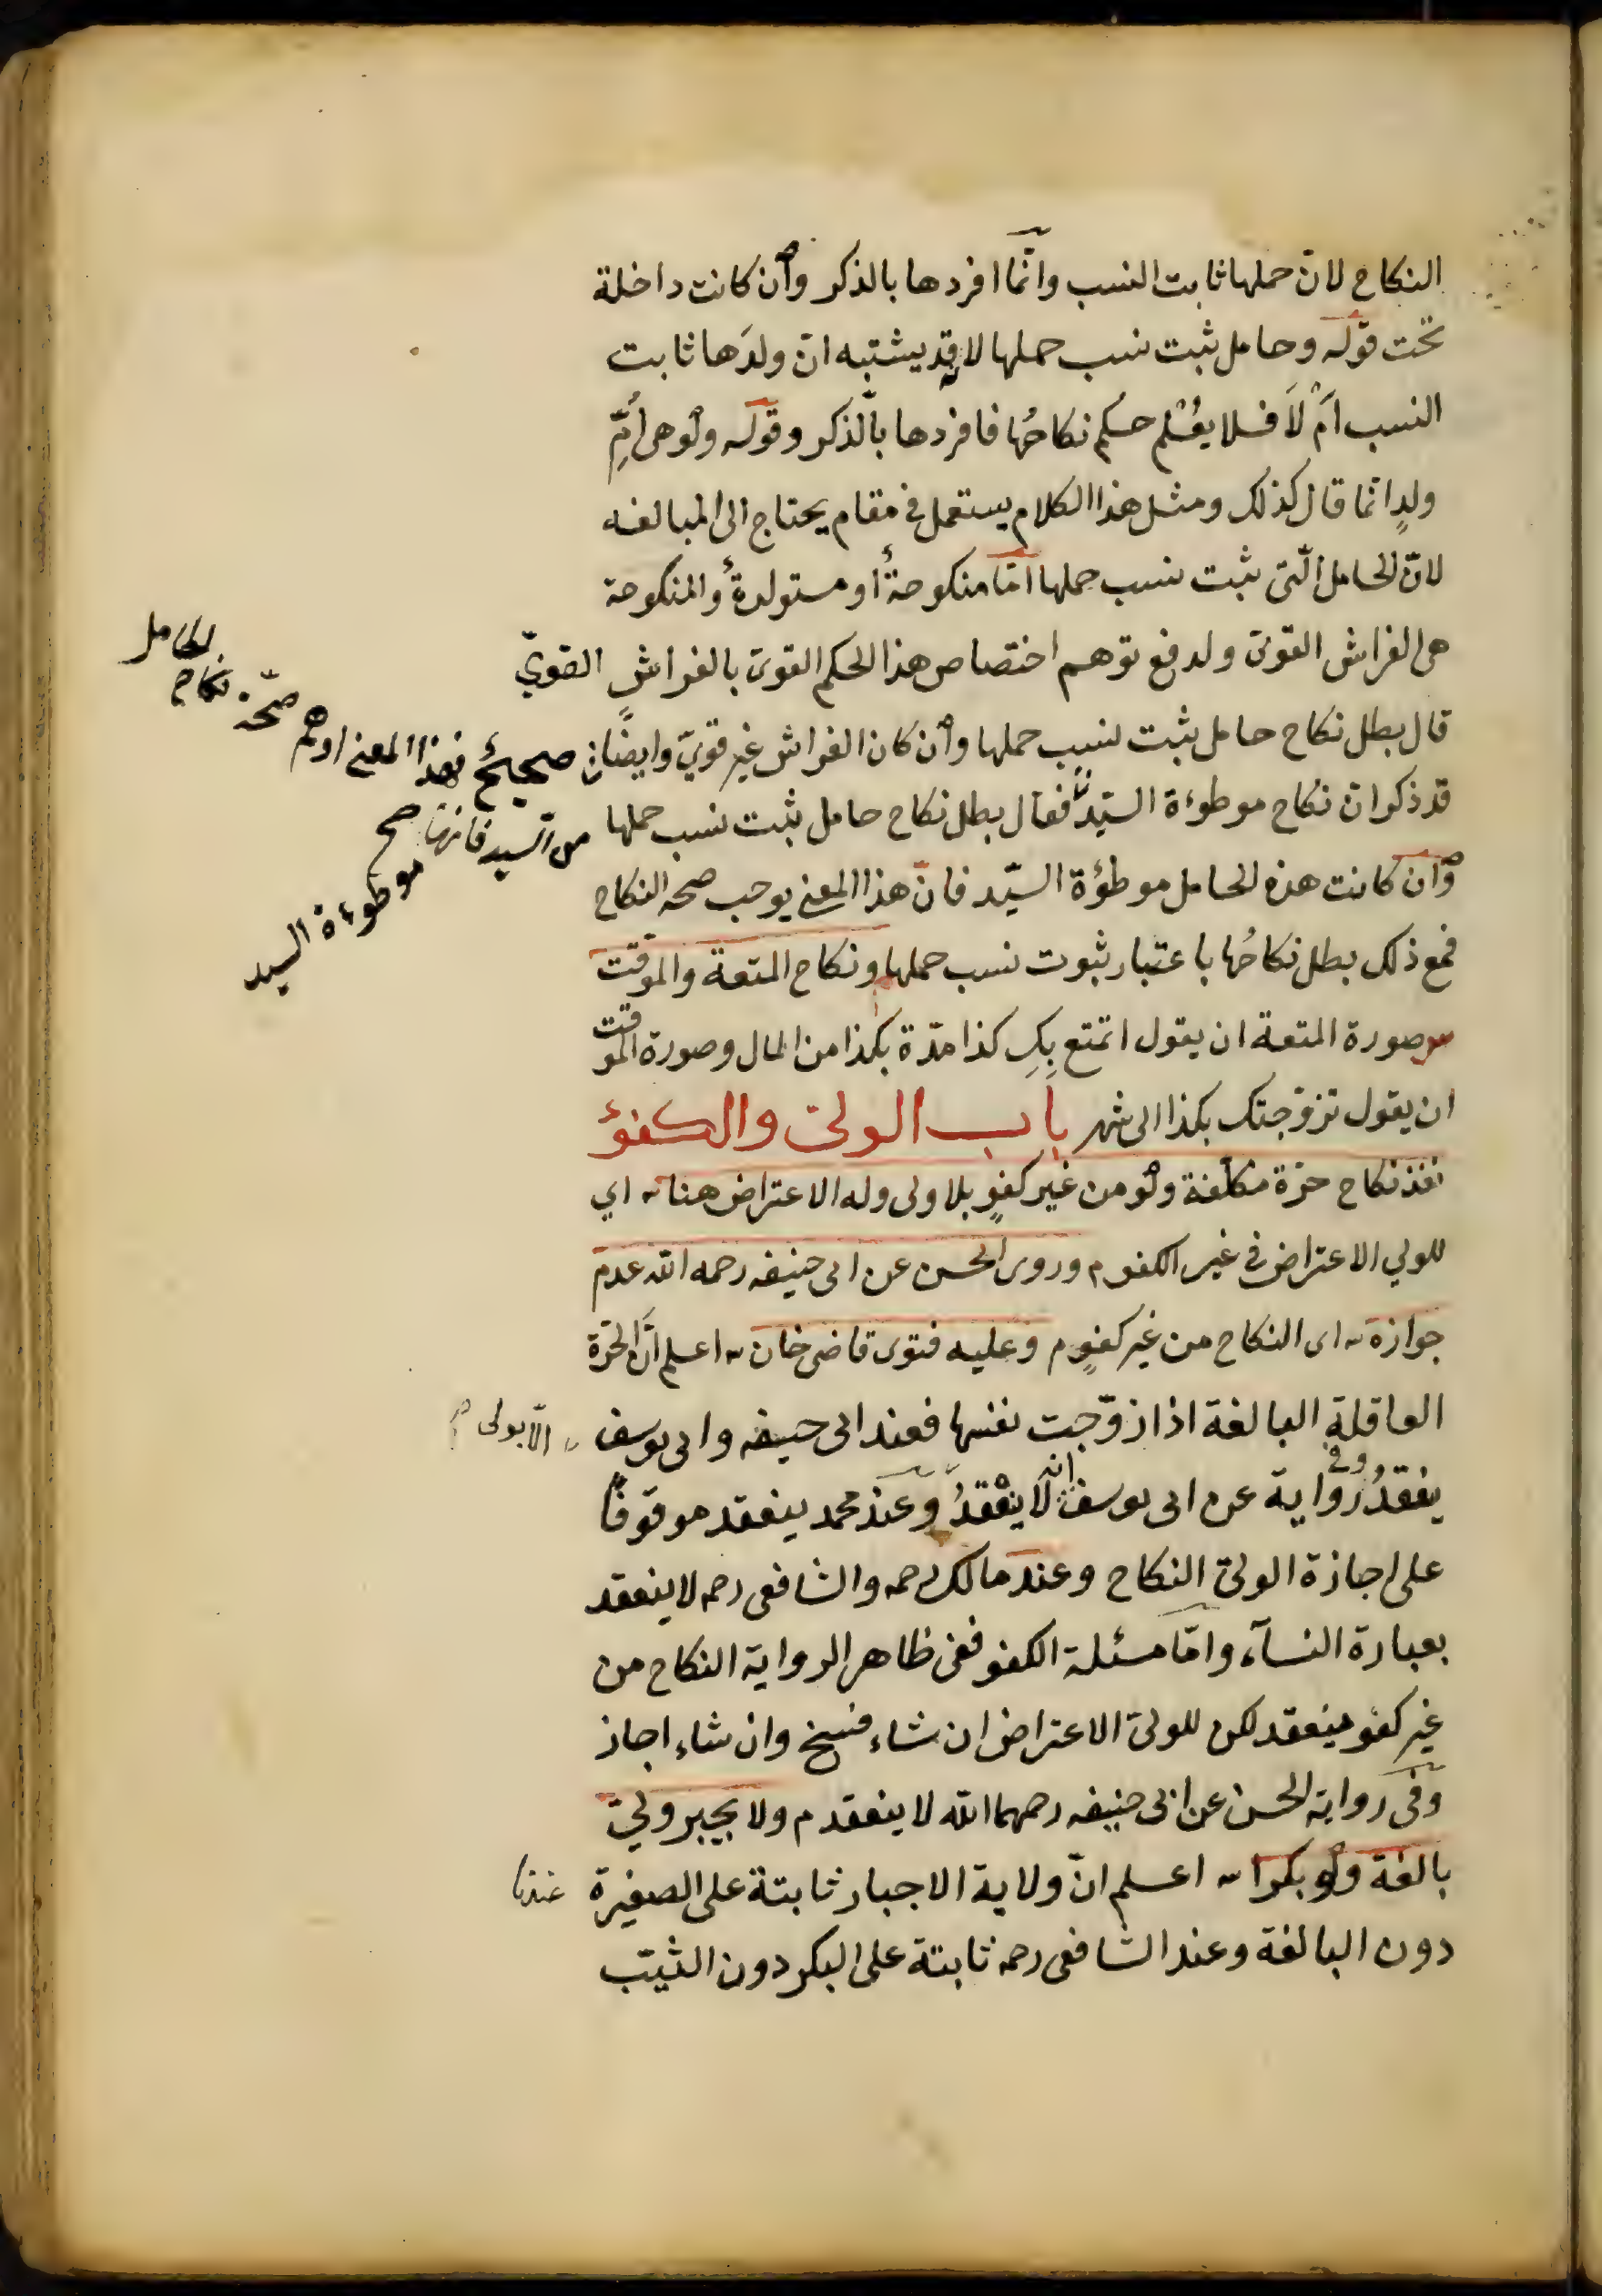 النكاح لانّ حملها ثابت النسب وانّما افردها بالذكر وان كانت داخلة
تحت قوله وحامل ثبت نسب حملها لانه قد يشتبه انّ ولدَها ثابت
النسب اَمْ لَا فلا يُعْلم حكم نكاحُها فافردها بالذكر وقوله ولو هى اُمِّ
ولدٍ انما قال كذلك ومثل هذا الكلام يستعمل فى مقام يحتاج الى المبالغه
لانّ الحامل الّتى ثبت نسب حملها امّا منكوحةٌ او مستولدةٌ والمنكوحة
هى الفراش القوىّ ولدفع توهم اختصاص هذا الحكم القوىّ بالفراشِ القويّ
قال بطل نكاح حامل ثبت نسب حملها وان كان الفراش غير قويّ وايضًا
قد ذكر انّ نكاح موطوءة السيّد فقال بطل نكاح حامل ثبت نسب حملها
صحيحٌ فهذا المعنى اوهم صحّة نكاح
الحامل
من السيد فانها صح
موطوءة السيد
وان كانت هذه الحامل موطؤة السيّد فانّ هذا المعنى يوجب صحه النكاح
فمع ذلك بطل نكاحُها باعتبار ثبوت نسب حملها ونكاح المتعة والموقّت
صورة المتعة ان يقول اتمتع بِكِ كذا مدّة بكذا من المال وصورة الموقت
ان يقول تزوّجتك بكذا الى شهر باب الولىّ والكفؤ
نفذ نكاح حرّة مكلّفة ولو من غير كفوٍ بلا ولى وله الاعتراض هنا اي
للولي الاعتراض فى غير الكفو م وروى الحسن عن ابى حنيفه رحمه الله عدم
جوازه اى النكاح من غير كفوٍ م وعليه فتوى قاضى خان اعلم انّ الحرّة
العاقلة البالغة اذا زوّجت نفسها فعند ابى حنيفه وابى يوسف
الّا بولى
ينعقدُ وفى رواية عن ابى يوسف انه لا ينعقدُ وعند محمد ينعقد موقوفًا
على اجازة الولىّ النكاح وعند مالك رحمه والشافعى رحمه لا ينعقد
بعبارة النسآء وامّا مسئلة الكفو ففى ظاهر الرواية النكاح من
غير كفو ينعقد لكن للولىّ الاعتراض ان شاء فسخ وان شاء اجاز
وفى رواية الحسن عن ابى حنيفه رحمهما الله لا ينعقد م ولا يجبر وليّ
بالغة ولو بكرا اعلم انّ ولاية الاجبار ثابتة على الصغيرة عندنا
دون البالغة وعند الشافعى رحمه ثابتة على البكر دون الثيّب